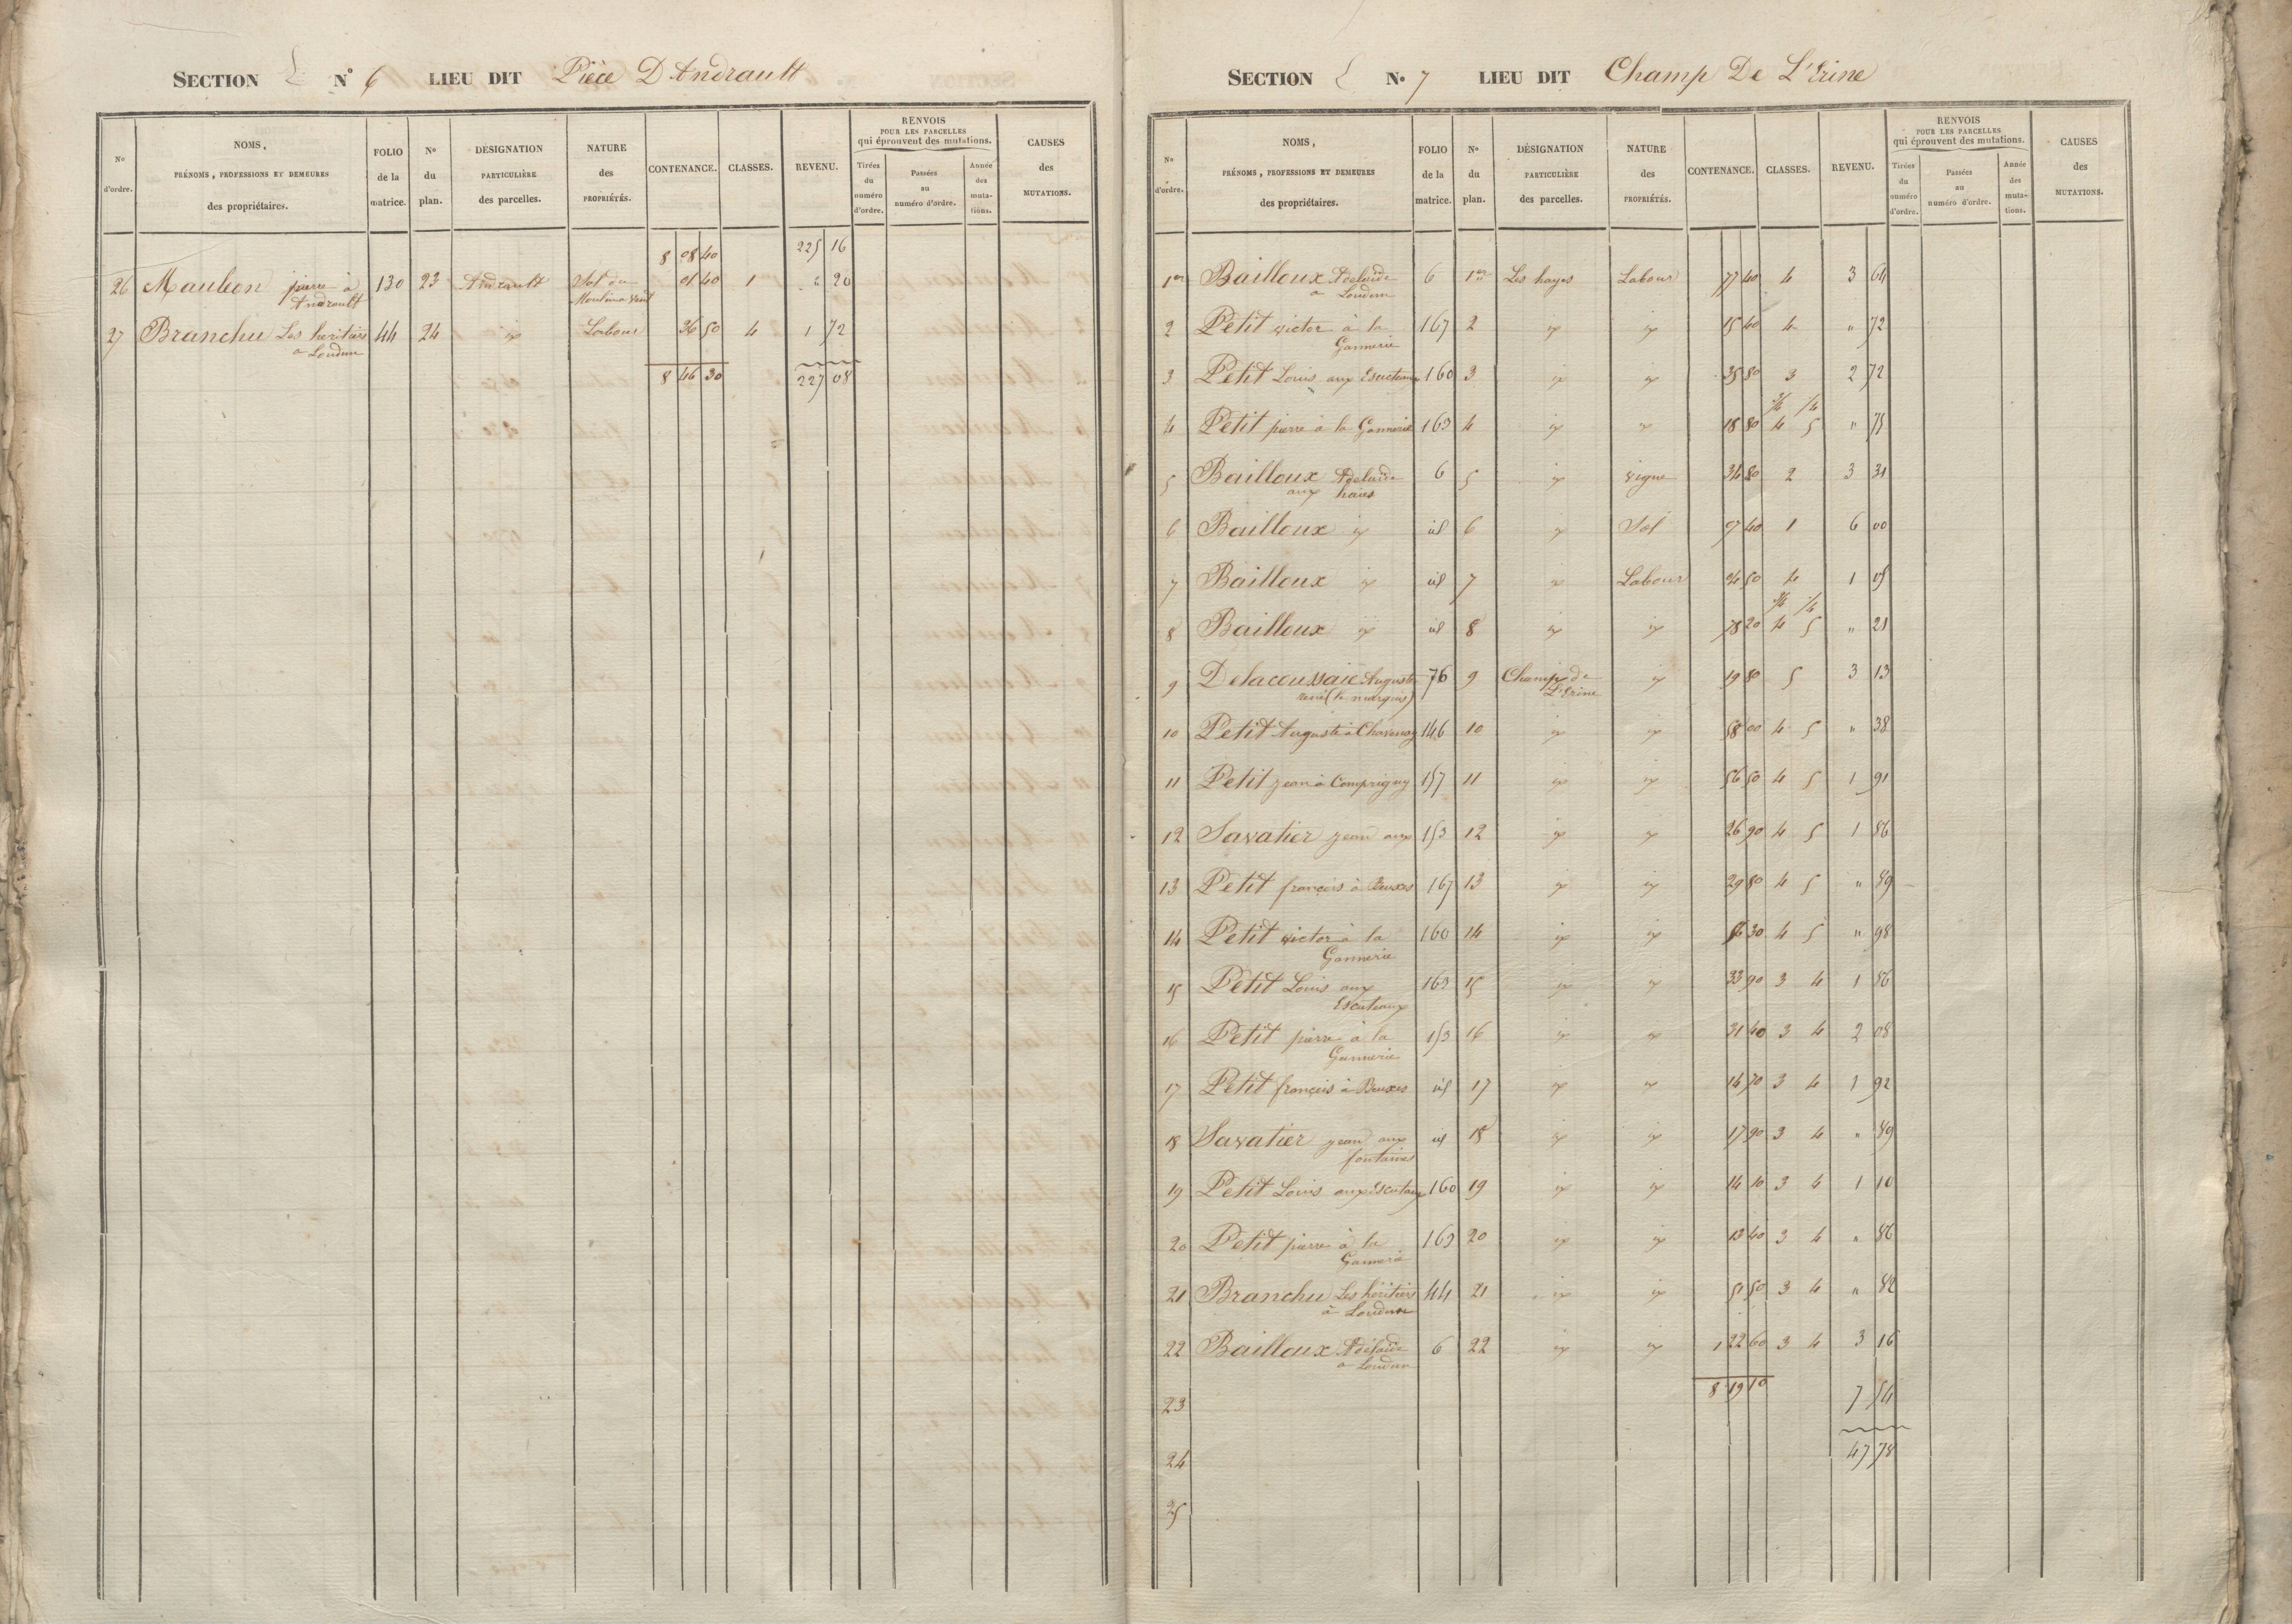 SECTION N° 6 LIEU DIT Pièce D'Andrault
N° d'ordre.
NOMS, PRÉNOMS, PROFESSIONS ET DEMEURES des propriétaires.
FOLIO de la matrice.
N° du plan.
DÉSIGNATION PARTICULIÈRE des parcelles.
NATURE des PROPRIÉTÉS.
CONTENANCE.
CLASSES.
REVENU.
RENVOIS POUR LES PARCELLES qui éprouvent des mutations.
Tirées du numéro d'ordre.
Passées au numéro d'ordre.
Année des muta-tions.
CAUSES des MUTATIONS.
8 08 40 225 16
26 Maulion pierre à 130 23 Andrault Sol du 01 40 1 " 20
Andrault Moulin a Vent
27 Branchu Les heritiers 44 24 id Labour 36 50 4 1 72
a Loudun
8 46 30 227 08
SECTION N° 7 LIEU DIT Champ De L'Erine
N° d'ordre.
NOMS, PRÉNOMS, PROFESSIONS ET DEMEURES des propriétaires.
FOLIO de la matrice.
N° du plan.
DÉSIGNATION PARTICULIÈRE des parcelles.
NATURE des PROPRIÉTÉS.
CONTENANCE.
CLASSES.
REVENU.
RENVOIS POUR LES PARCELLES qui éprouvent des mutations.
Tirées du numéro d'ordre.
Passées au numéro d'ordre.
Année des muta-tions.
CAUSES des MUTATIONS.
1er Bailloux Adelaïde 6 1er Les hayes Labour 77 40 4 3 64
a Loudun
2 Petit victor à la 167 2 id id 15 40 4 " 72
Gannerie
3 Petit Louis aux Escuteaux 160 3 id id 35 80 3 2 72
3/4 1/4
4 Petit pierre à la Gannerie 163 4 id id 18 80 4 5 " 75
5 Bailloux Adelaïde 6 5 id vigne 34 80 2 3 31
aux haies
6 Bailloux id id 6 id Sol 40 1 6 00
7 Bailloux id id 7 id Labour 50 4 1 05
3/4 1/4
8 Bailloux id id 8 id id 20 4 5 " 21
9 Delacoussaie Auguste 76 9 Champ de id 19 80 5 3 13
rené (le marquis) L'Erine
10 Petit Auguste à Chavenay 146 10 id id 58 00 4 5 " 38
11 Petit jean à Comprigny 157 11 id id 56 50 4 5 1 91
12 Savatier jean aux 153 12 id id 26 90 4 5 1 86
13 Petit françois à Beuxes 167 13 id id 29 80 4 5 " 89
14 Petit victor à la 160 14 id id 30 4 5 " 98
Gannerie
15 Petit Louis aux 163 15 id id 33 90 3 4 1 86
Escuteaux
16 Petit pierre à la 153 16 id id 31 40 3 4 2 08
Gannerie
17 Petit françois à Beuxes id 17 id id 14 70 3 4 1 92
18 Savatier jean aux id 18 id id 17 90 3 4 " 89
fontaines
19 Petit Louis aux Escuteaux 160 19 id id 14 10 3 4 1 10
20 Petit pierre à la 163 20 id id 13 40 3 4 " 86
Gannerie
21 Branchu Les héritiers 44 21 id id 51 50 3 4 " 82
à Loudun
22 Bailloux Adélaïde 6 22 id id 1 22 60 3 4 3 16
a Loudun
23 8 19 10 7 54
24 47 78
25